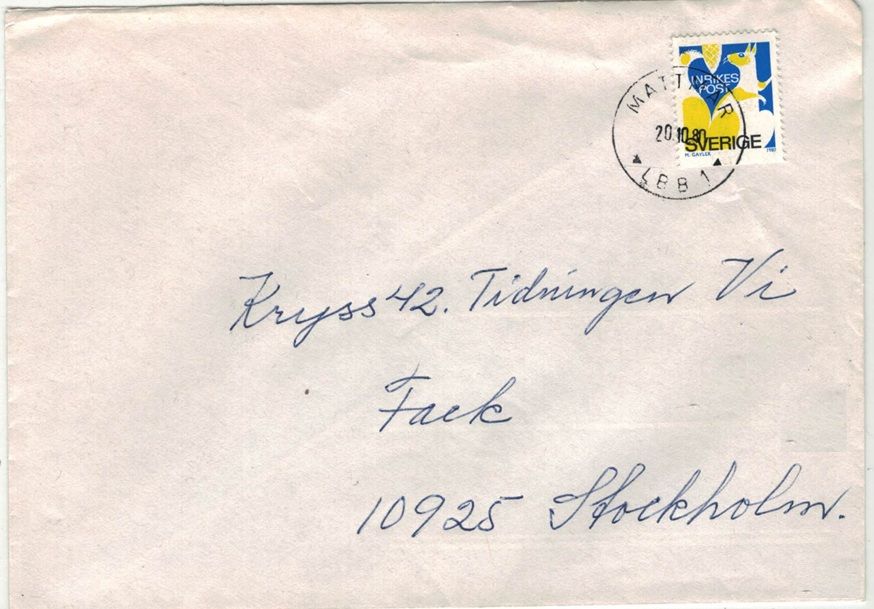 INRIKES
POST
SVERIGE
M. GAYLER
1980
MATTMAR
20.10.80
LBB 1
Kryss 42. Tidningen Vi
Fack
10925 Stockholm.